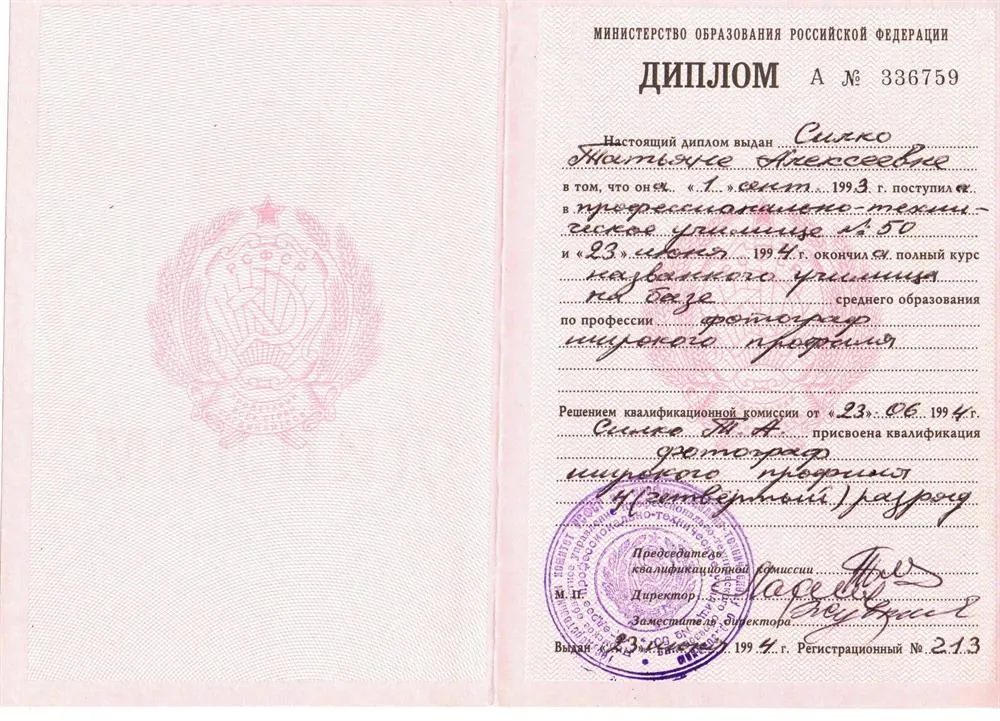 РСФСР
МИНИСТЕРСТВО ОБРАЗОВАНИЯ РОССИЙСКОЙ ФЕДЕРАЦИИ
ДИПЛОМ А № 336759
Настоящий диплом выдан Силко
Татьяне Алексеевне
в том, что она «1» сент 1993 г. поступила
в профессионально-техни-
ческое училище № 50
и «23» июня 1994 г. окончила полный курс
названного училища
на базе среднего образования
по профессии фотограф
широкого профиля
Решением квалификационной комиссии от «23» 06 1994 г.
Силко Т. А. присвоена квалификация
фотограф
широкого профиля
4 (четвертый) разряд
Председатель
квалификационной комиссии
М. П. Директор
Заместитель директора
Выдан «23» июня 1994 г. Регистрационный № 213